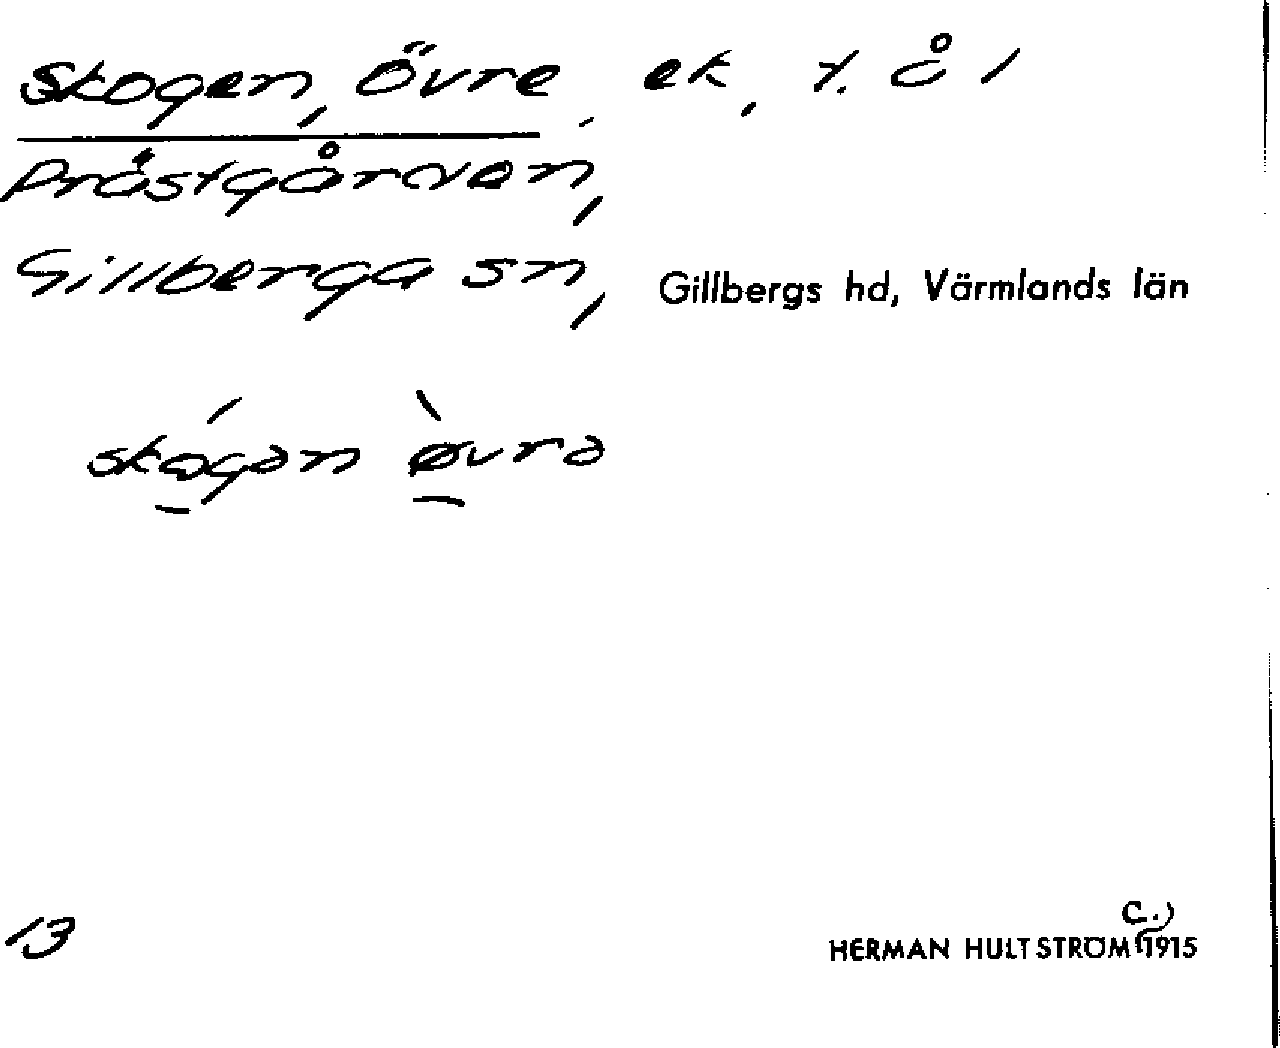 Skogen, Övre, ek, t. å 1
Prästgården,
Gillberga sn, Gillbergs hd, Värmlands län
sko̠gən ø̠vrə
13
HERMAN HULTSTRÖM (c.) 1915